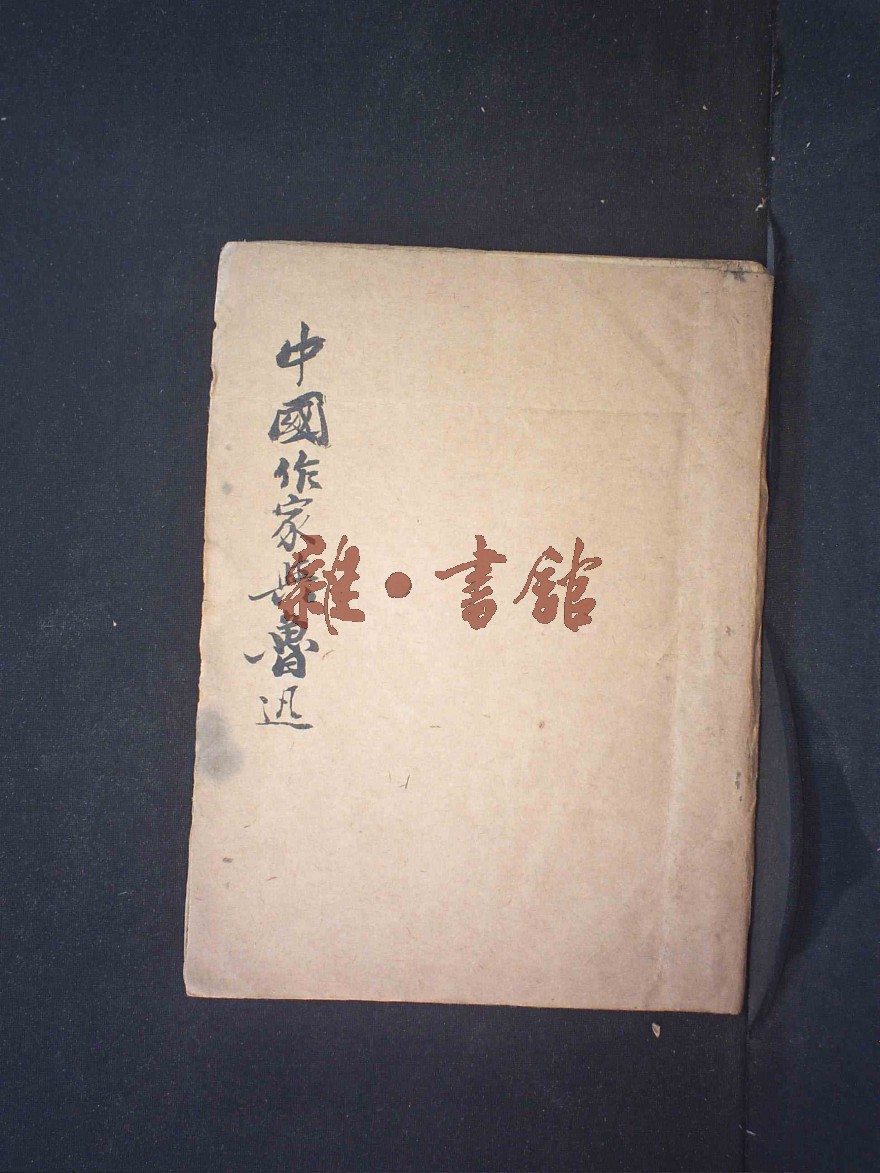 中國作家與魯迅
雜·書館